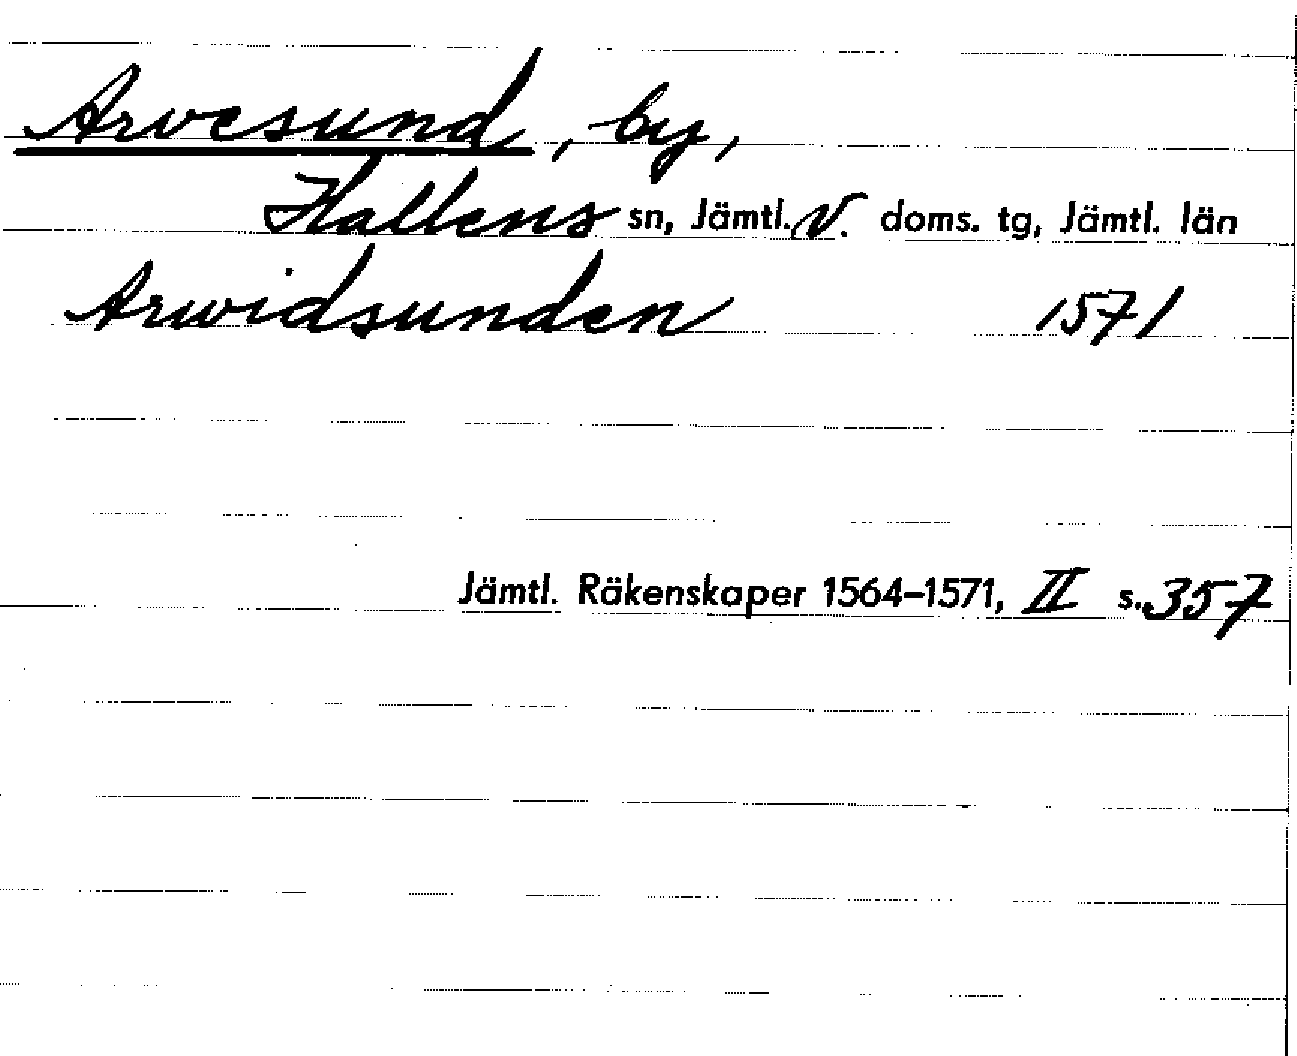 Arvesund, by,
Hallens sn, Jämtl. V. doms. tg, Jämtl. län
Arwidsunden 1571
Jämtl. Räkenskaper 1564–1571, II s. 357